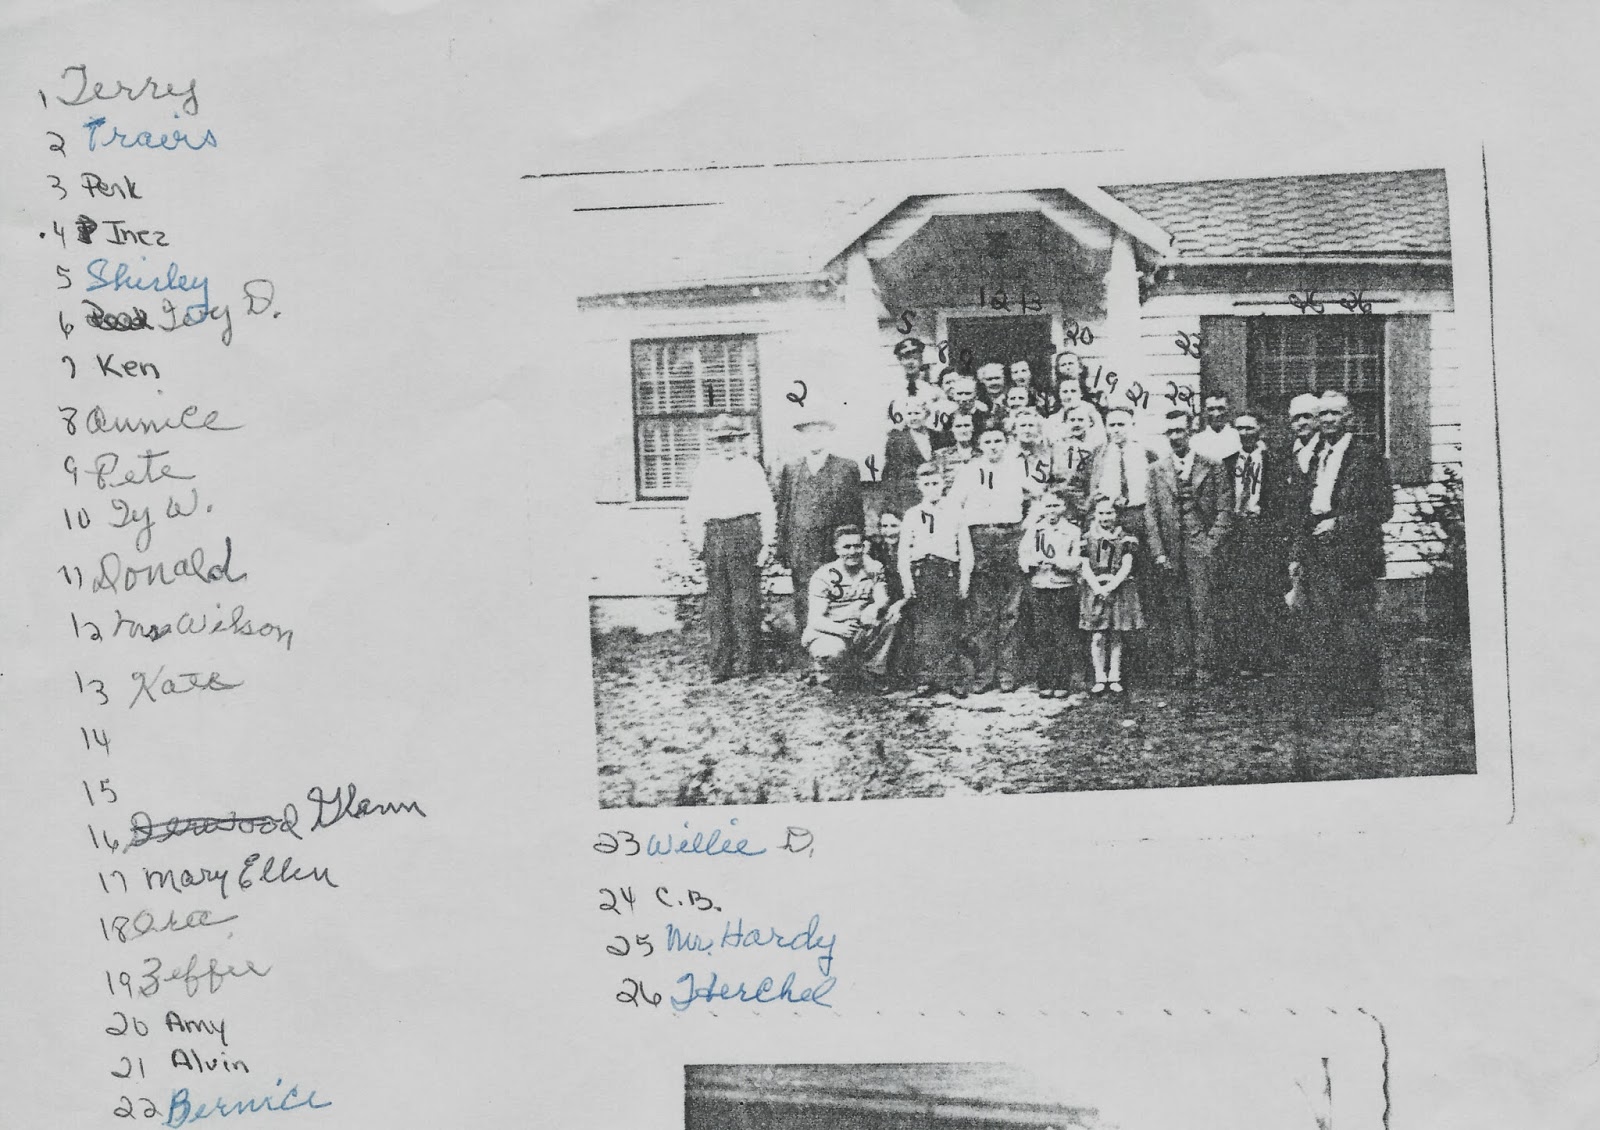 1 Terry
2 Travis
3 Penk
4 Inez
5 Shirley
6 Toy D.
7 Ken
8 Aunice
9 Pete
10 Ty W.
11 Donald
12 Mrs Wilson
13 Kate
14
15
16 Derwood Glenn
17 Mary Ellen
18 Ora
19 Zeffie
20 Amy
21 Alvin
22 Bernice
5 8 9 12 13 20 25 26
1 2 6 10 19 21 22 23
4 7 11 15 18 24
3 16 17
23 Willie D.
24 C.B.
25 Mr. Hardy
26 Herchel